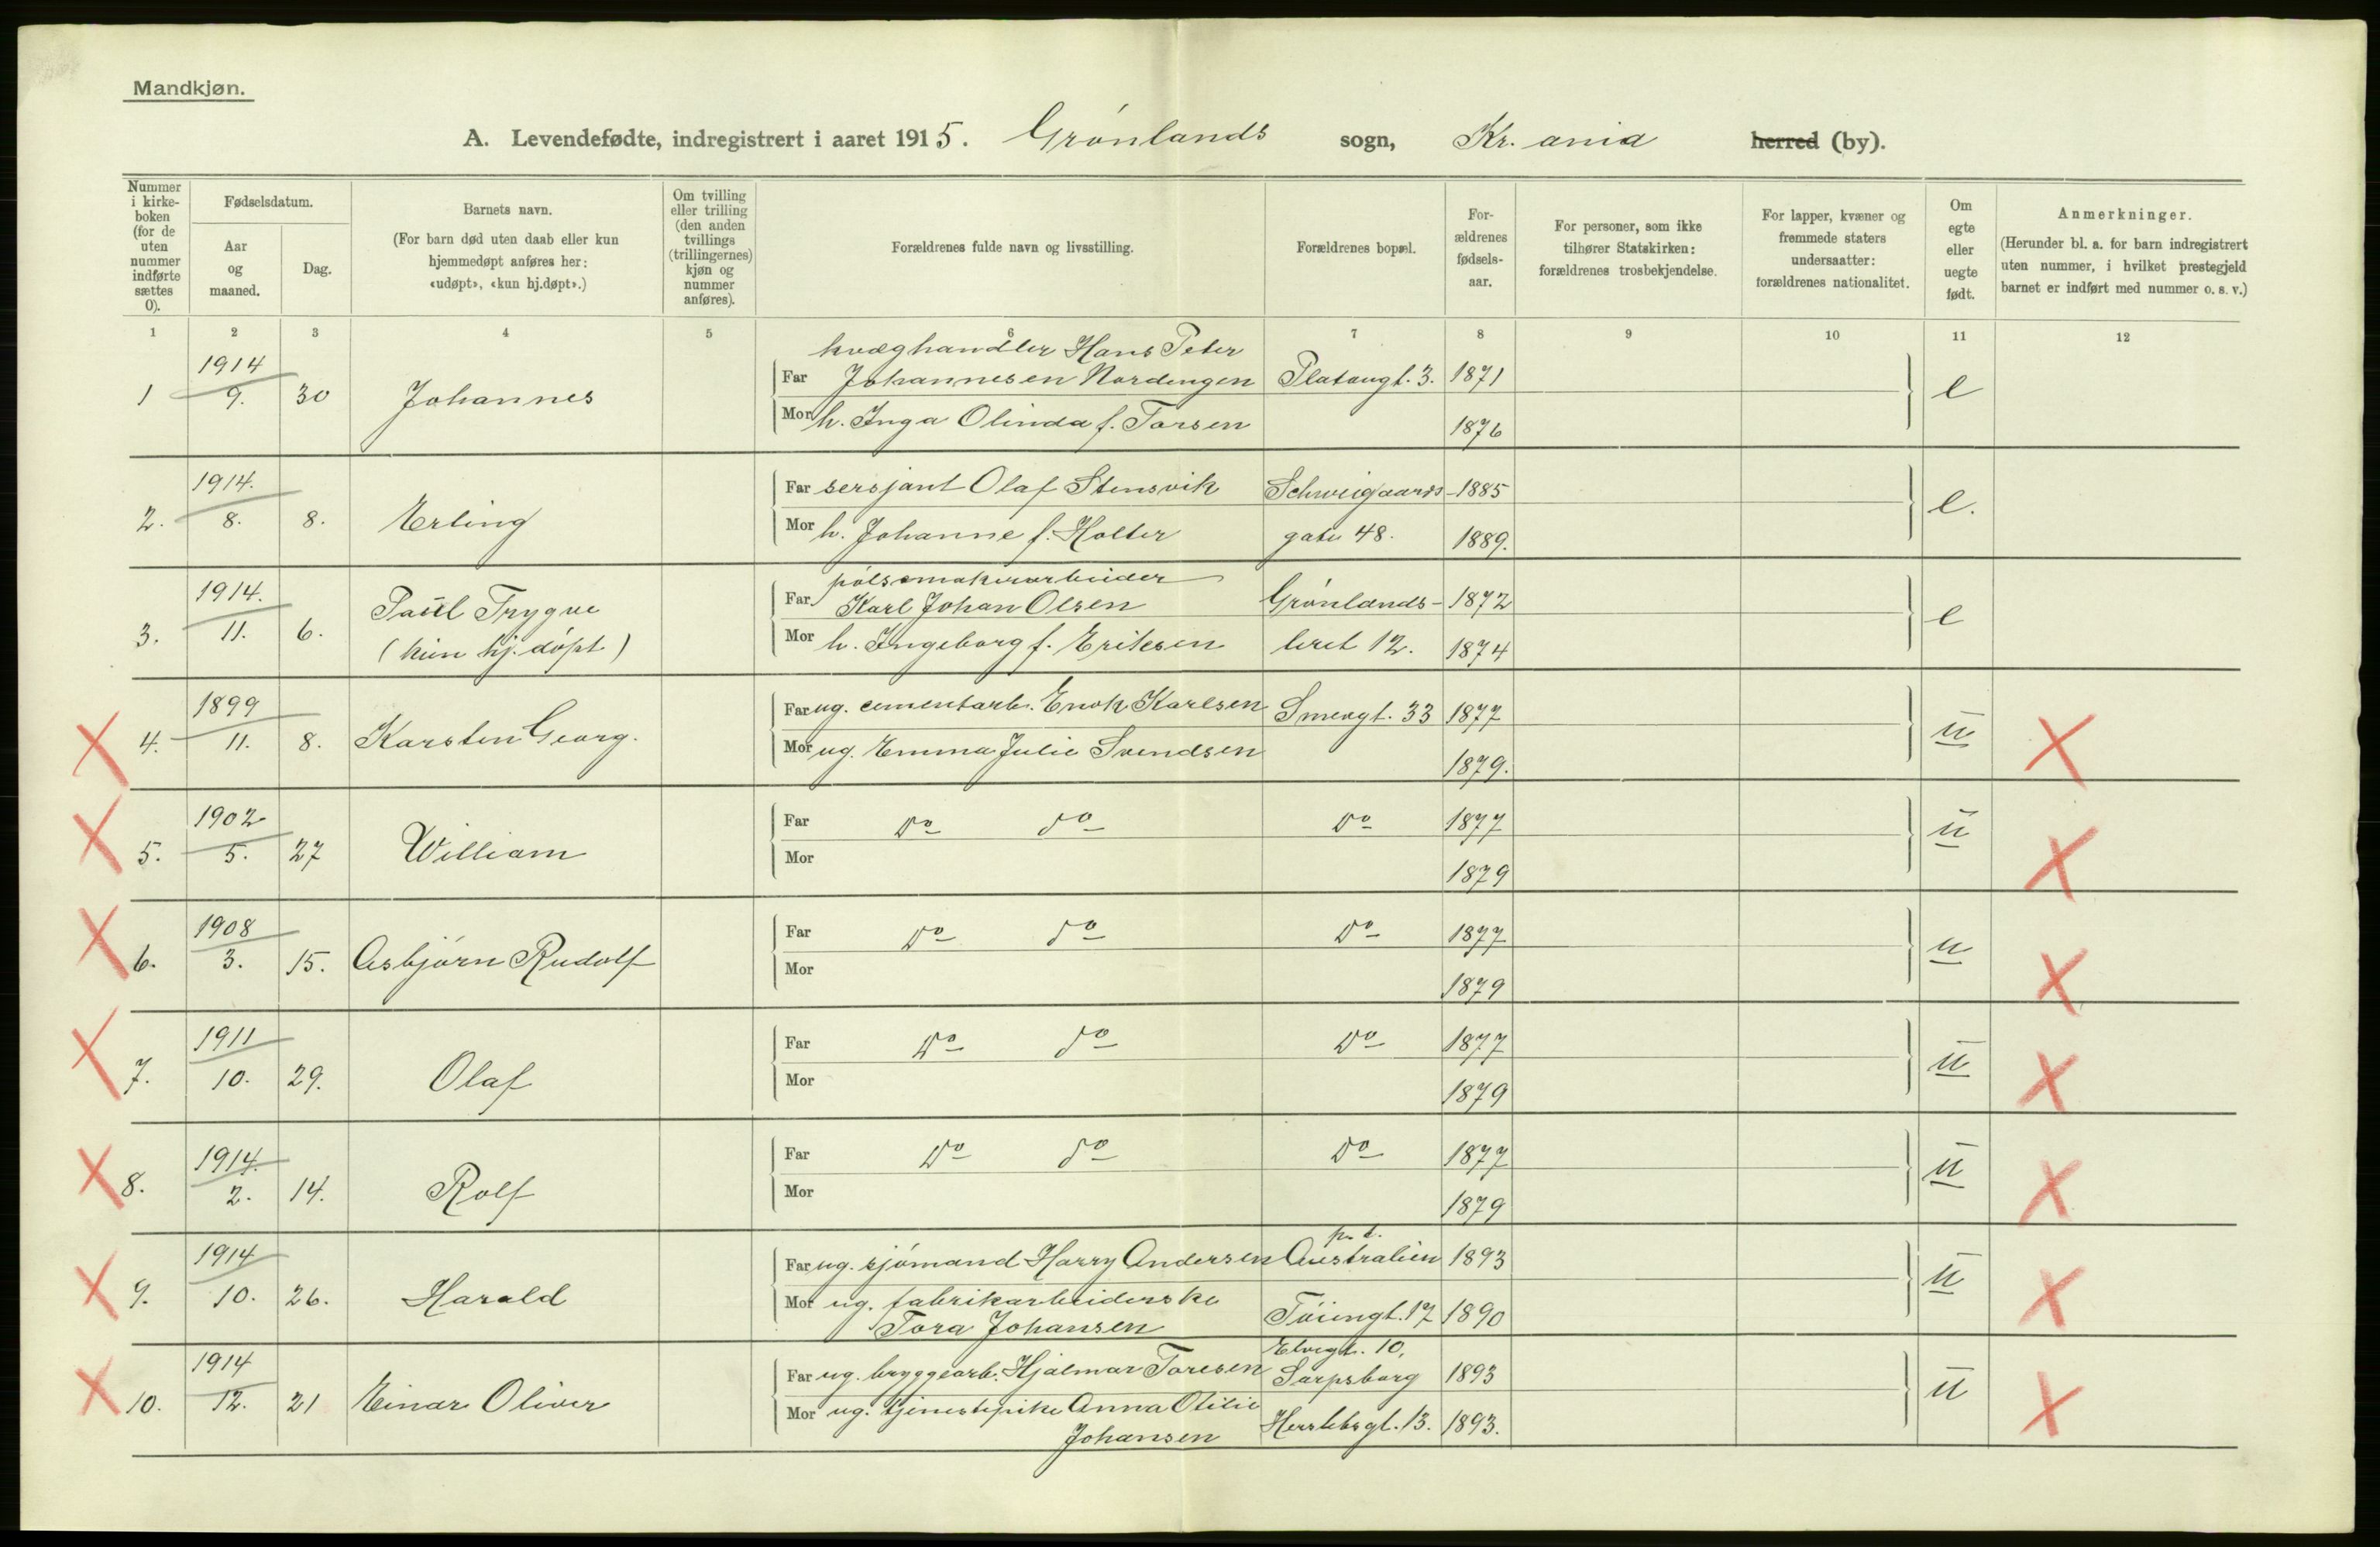 Mandkjøn.
A. Levendefødte, indregistrert i aaret 1915. Grønlands sogn, Kr.ania herred (by).
Nummer i kirke-boken (for de uten nummer indførte sættes 0).
Fødselsdatum.
Aar og maaned.
Dag.
Barnets navn.
(For barn død uten daab eller kun hjemmedøpt anføres her: «udøpt», «kun hj.døpt».)
Om tvilling eller trilling (den anden tvillings (trillingernes) kjøn og nummer anføres).
Forældrenes fulde navn og livsstilling.
Forældrenes bopæl.
For-ældrenes fødsels-aar.
For personer, som ikke tilhører Statskirken: forældrenes trosbekjendelse.
For lapper, kvæner og fremmede staters undersaatter: forældrenes nationalitet.
Om egte eller uegte født.
Anmerkninger.
(Herunder bl. a. for barn indregistrert uten nummer, i hvilket prestegjeld barnet er indført med nummer o. s. v.)
1 2 3 4 5 6 7 8 9 10 11 12
kvæghandler Hans Peter
1914
Far Johannesen Nordengen Platougt. 3. 1871
1 9. 30 Johannes e
Mor h. Inga Olinda f. Torsen 1876
1914.
Far sersjant Olaf Stensvik Schweigaards- 1885
2. 8. 8. Erling e.
Mor h. Johanne f. Holter gate 48. 1889.
pølsemakerarbeider
1914.
Far Karl Johan Olsen Grønlands- 1872
Paul Trygve e
3. 11. 6. (kun hj. døpt)
Mor h. Ingeborg f. Eriksen leret 12. 1874
1899
Far ug. cementarb. Enok Karlsen Smedgt. 33 1877
4. 11. 8. Karsten Georg. u
Mor ug. Emma Julie Svendsen 1879.
1902
Far Do do Do 1877
5. 5. 27 William u
Mor 1879
1908
Far Do do Do 1877
6. 3. 15. Asbjørn Rudolf u
Mor 1879
1911
Far Do do Do 1877
7. 10. 29. Olaf u
Mor 1879
1914.
Far Do do Do 1877
8. 2. 14. Rolf u
Mor 1879
p. t.
1914
Far ug. sjømand Harry Andersen Australien 1893
9. 10. 26. Harald u
Mor ug. fabrikarbeiderske
Tora Johansen Tøiengt. 17 1890
Elvegt. 10,
1914
Far ug. bryggearb. Hjalmar Toresen Sarpsborg 1893
10. 12. 21 Einar Oliver u
Mor ug. tjenestepike Anna Otilie
Johansen Herslebsgt. 13. 1893.